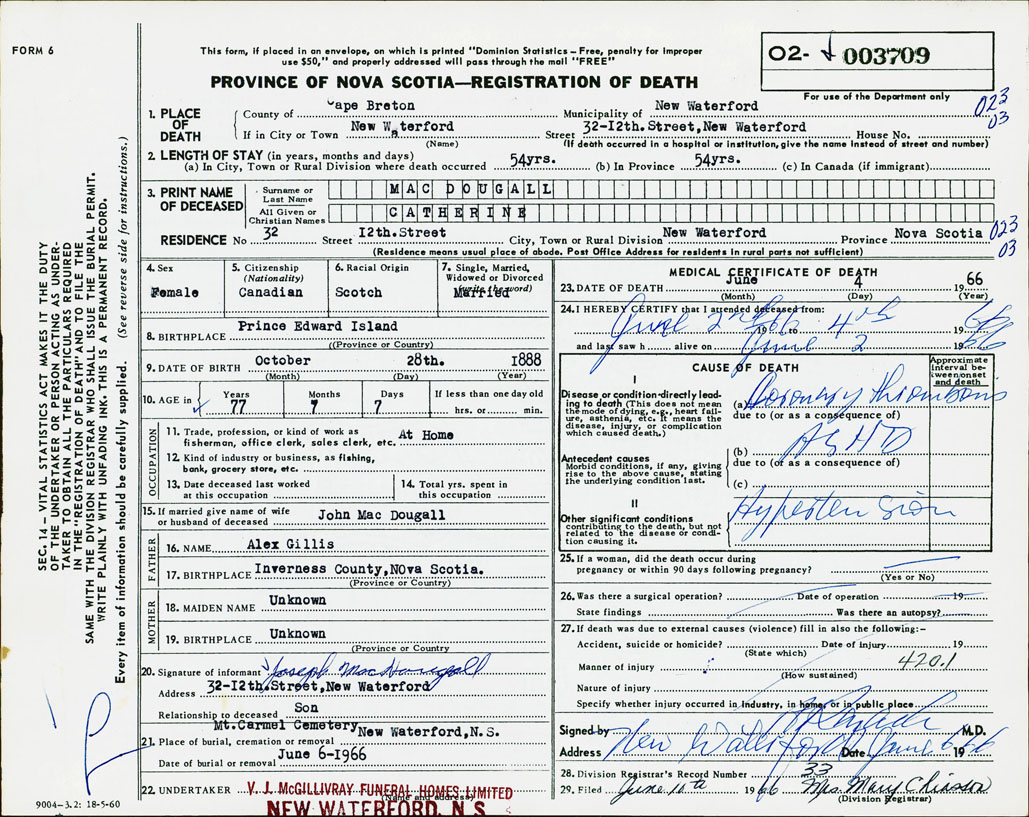 FORM 6
This form, if placed in an envelope, on which is printed "Dominion Statistics – Free, penalty for improper
use $50," and properly addressed will pass through the mail "FREE"
O2- 003709
PROVINCE OF NOVA SCOTIA—REGISTRATION OF DEATH
For use of the Department only
023
03
1. PLACE OF DEATH
County of Cape Breton Municipality of New Waterford
If in City or Town New Waterford Street 32-I2th.Street,New Waterford House No.
(Name) (If death occurred in a hospital or institution, give the name instead of street and number)
2. LENGTH OF STAY (in years, months and days)
(a) In City, Town or Rural Division where death occurred 54yrs. (b) In Province 54yrs. (c) In Canada (if immigrant)
3. PRINT NAME OF DECEASED
Surname or Last Name MAC DOUGALL
All Given or Christian Names CATHERINE
RESIDENCE No 32 Street I2th.Street City, Town or Rural Division New Waterford Province Nova Scotia 023
03
(Residence means usual place of abode. Post Office Address for residents in rural parts not sufficient)
4. Sex
Female
5. Citizenship
(Nationality)
Canadian
6. Racial Origin
Scotch
7. Single, Married,
Widowed or Divorced
(write the word)
Married
8. BIRTHPLACE Prince Edward Island
(Province or Country)
9. DATE OF BIRTH October 28th. I888
(Month) (Day) (Year)
10. AGE in
Years Months Days If less than one day old
77 7 7 hrs. or min.
OCCUPATION
11. Trade, profession, or kind of work as
fisherman, office clerk, sales clerk, etc. At Home
12. Kind of industry or business, as fishing,
bank, grocery store, etc.
13. Date deceased last worked
at this occupation
14. Total yrs. spent in
this occupation
15. If married give name of wife
or husband of deceased John Mac Dougall
FATHER
16. NAME Alex Gillis
17. BIRTHPLACE Inverness County,NOva Scotia.
(Province or Country)
MOTHER
18. MAIDEN NAME Unknown
19. BIRTHPLACE Unknown
(Province or Country)
20. Signature of informant Joseph MacDougall
Address 32-I2th.Street,New Waterford
Relationship to deceased Son
21. Place of burial, cremation or removal Mt.Carmel Cemetery New Waterford,N.S.
Date of burial or removal June 6-I966
22. UNDERTAKER V. J. McGILLIVRAY FUNERAL HOMES LIMITED
(Name and address)
NEW WATERFORD, N. S.
MEDICAL CERTIFICATE OF DEATH
23. DATE OF DEATH June 4 1966
(Month) (Day) (Year)
24. I HEREBY CERTIFY that I attended deceased from:
June 2nd 1966 to 4th 1966
and last saw h alive on June 2 1966
CAUSE OF DEATH
Approximate
interval be-
tween onset
and death
I
Disease or condition directly lead-
ing to death (This does not mean
the mode of dying, e.g., heart fail-
ure, asthenia, etc. It means the
disease, injury, or complication
which caused death.)
(a) Coronary Thrombosis
due to (or as a consequence of)
Antecedent causes
Morbid conditions, if any, giving
rise to the above cause, stating
the underlying condition last.
(b) ASHD
due to (or as a consequence of)
(c)
II
Other significant conditions
contributing to the death, but not
related to the disease or condi-
tion causing it.
Hypertension
25. If a woman, did the death occur during
pregnancy or within 90 days following pregnancy?
(Yes or No)
26. Was there a surgical operation? Date of operation 19
State findings Was there an autopsy?
27. If death was due to external causes (violence) fill in also the following:–
Accident, suicide or homicide? Date of injury 19
(State which)
420.1
Manner of injury
(How sustained)
Nature of injury
Specify whether injury occurred in industry, in home, or in public place
Signed by M.D.
Address New Waterford Date June 6 1966
28. Division Registrar's Record Number 33
29. Filed June 10th 1966 Mrs. Mary Chiasson
(Division Registrar)
SEC. 14 – VITAL STATISTICS ACT MAKES IT THE DUTY
OF THE UNDERTAKER OR PERSON ACTING AS UNDER-
TAKER TO OBTAIN ALL THE PARTICULARS REQUIRED
IN THE "REGISTRATION OF DEATH" AND TO FILE THE
SAME WITH THE DIVISION REGISTRAR WHO SHALL ISSUE THE BURIAL PERMIT.
WRITE PLAINLY WITH UNFADING INK. THIS IS A PERMANENT RECORD.
Every item of information should be carefully supplied. (See reverse side for instructions.)
9004-3.2: 18-5-60